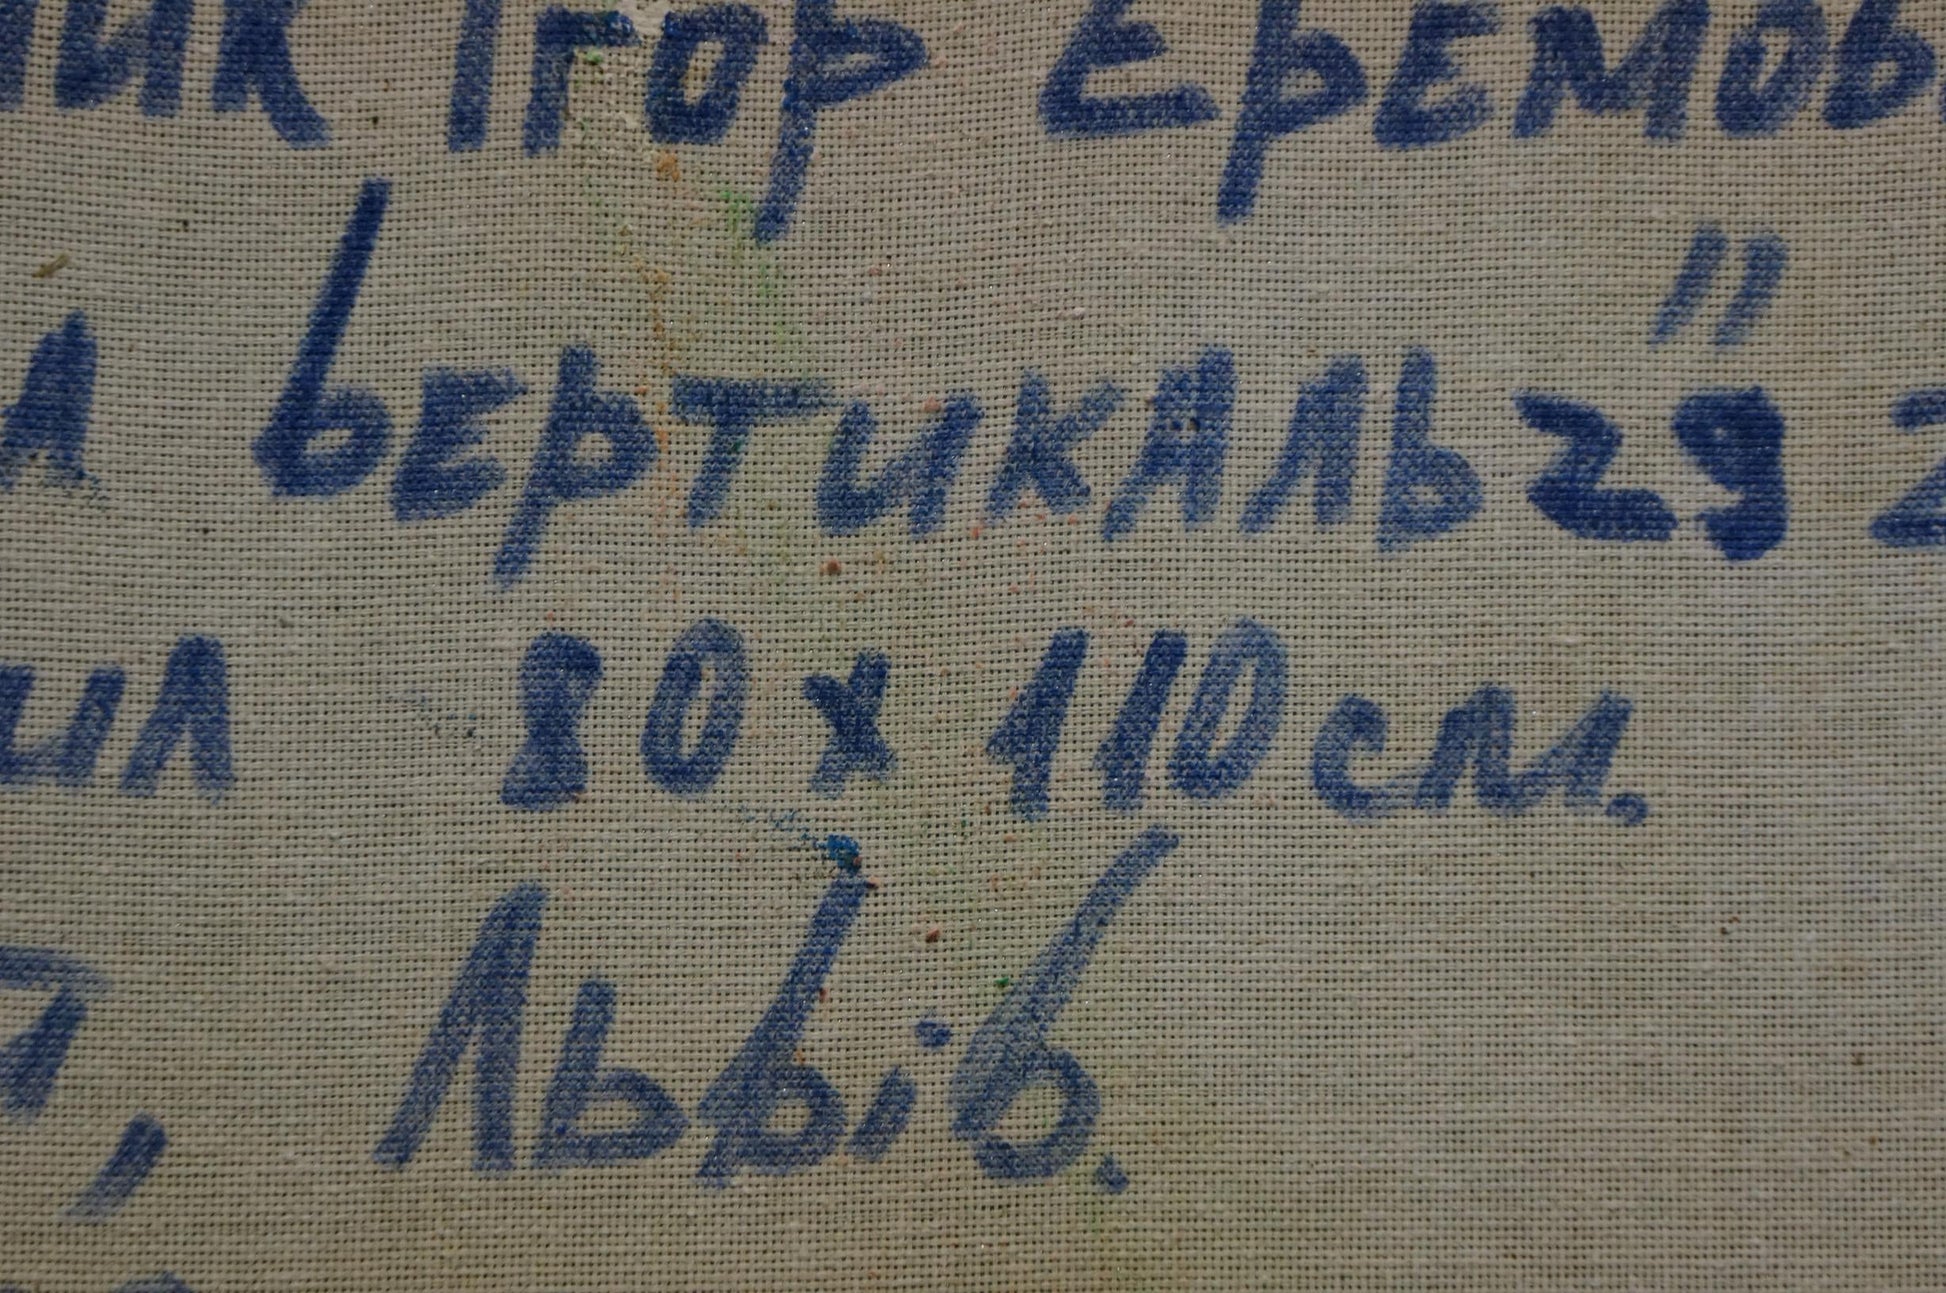 ик Ігор Еремов
л вертикаль 29" 2
ил 80х110см.
т, Львів.